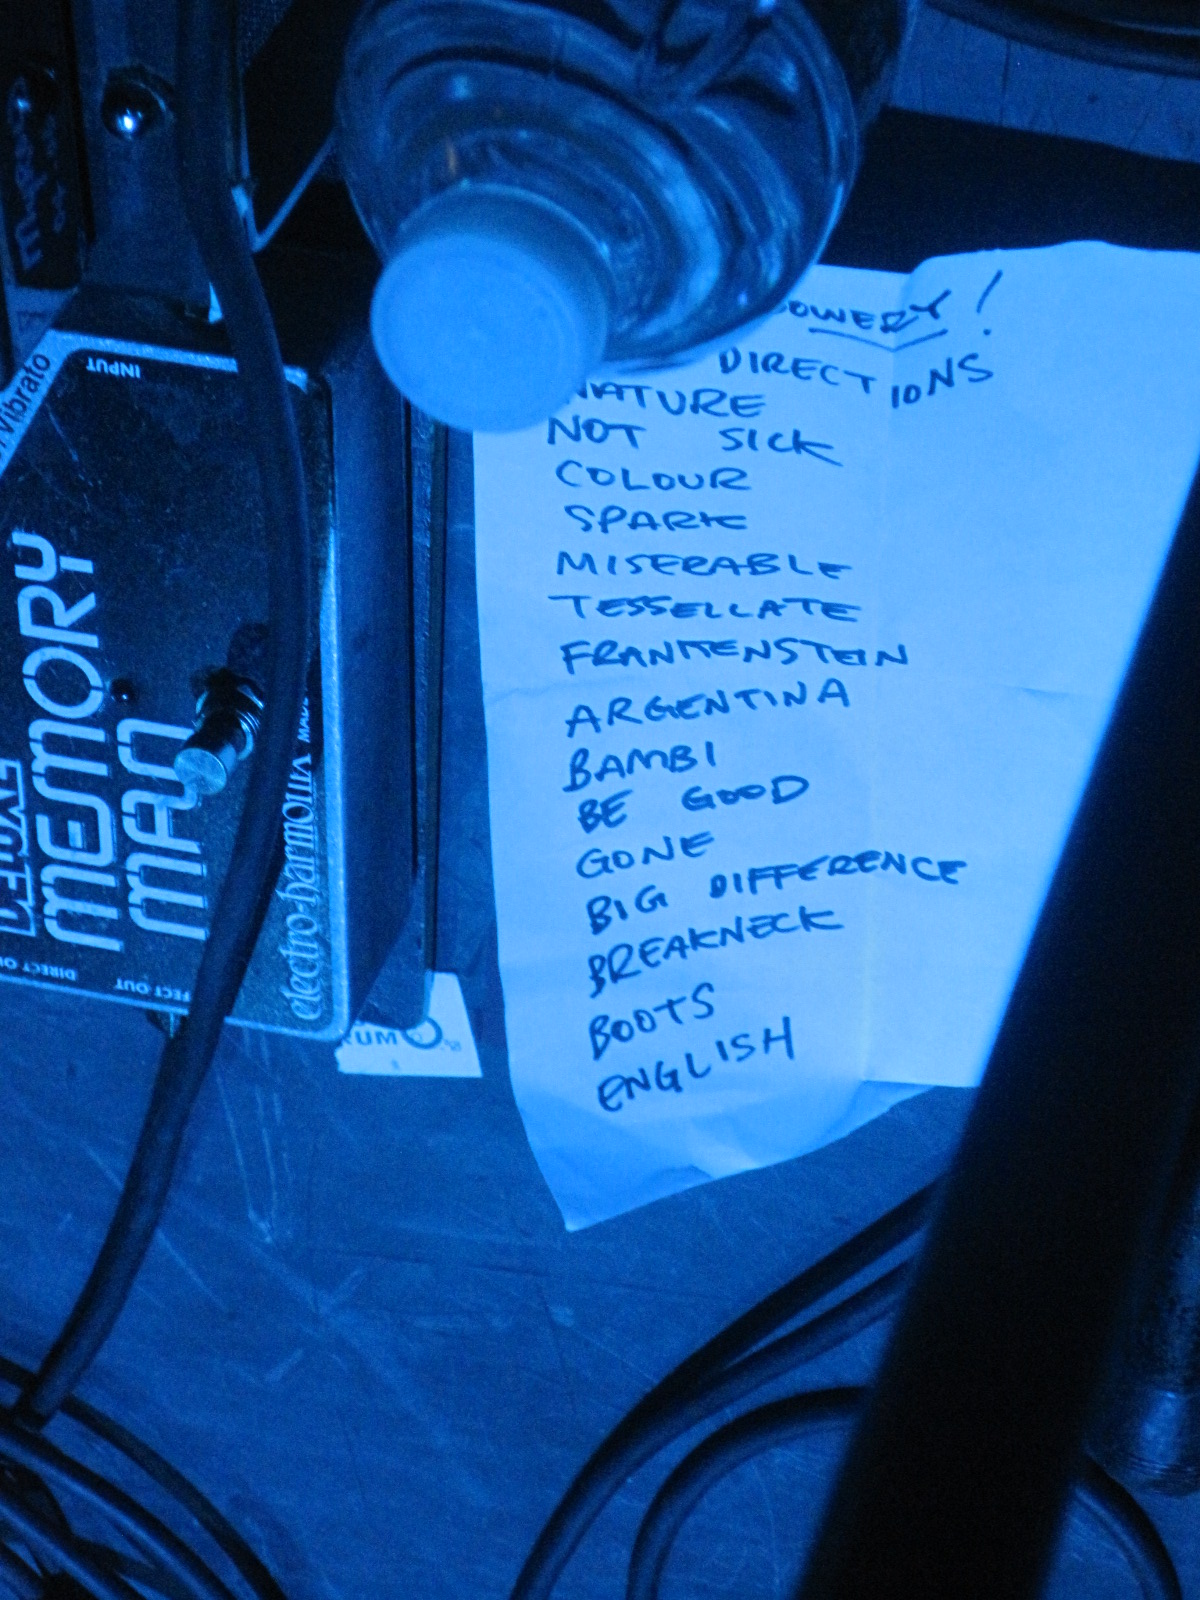 OWERY!
DIRECTIONS
NATURE
NOT SICK
COLOUR
SPARK
MISERABLE
TESSELLATE
FRANKENSTEIN
ARGENTINA
BAMBI
BE GOOD
GONE
BIG DIFFERENCE
BREAKNECK
BOOTS
ENGLISH
Vibrato
INPUT
DELUXE
MEMORY
MAN
electro-harmonix
MADE
DIRECT OU
FECT OUT
RUM